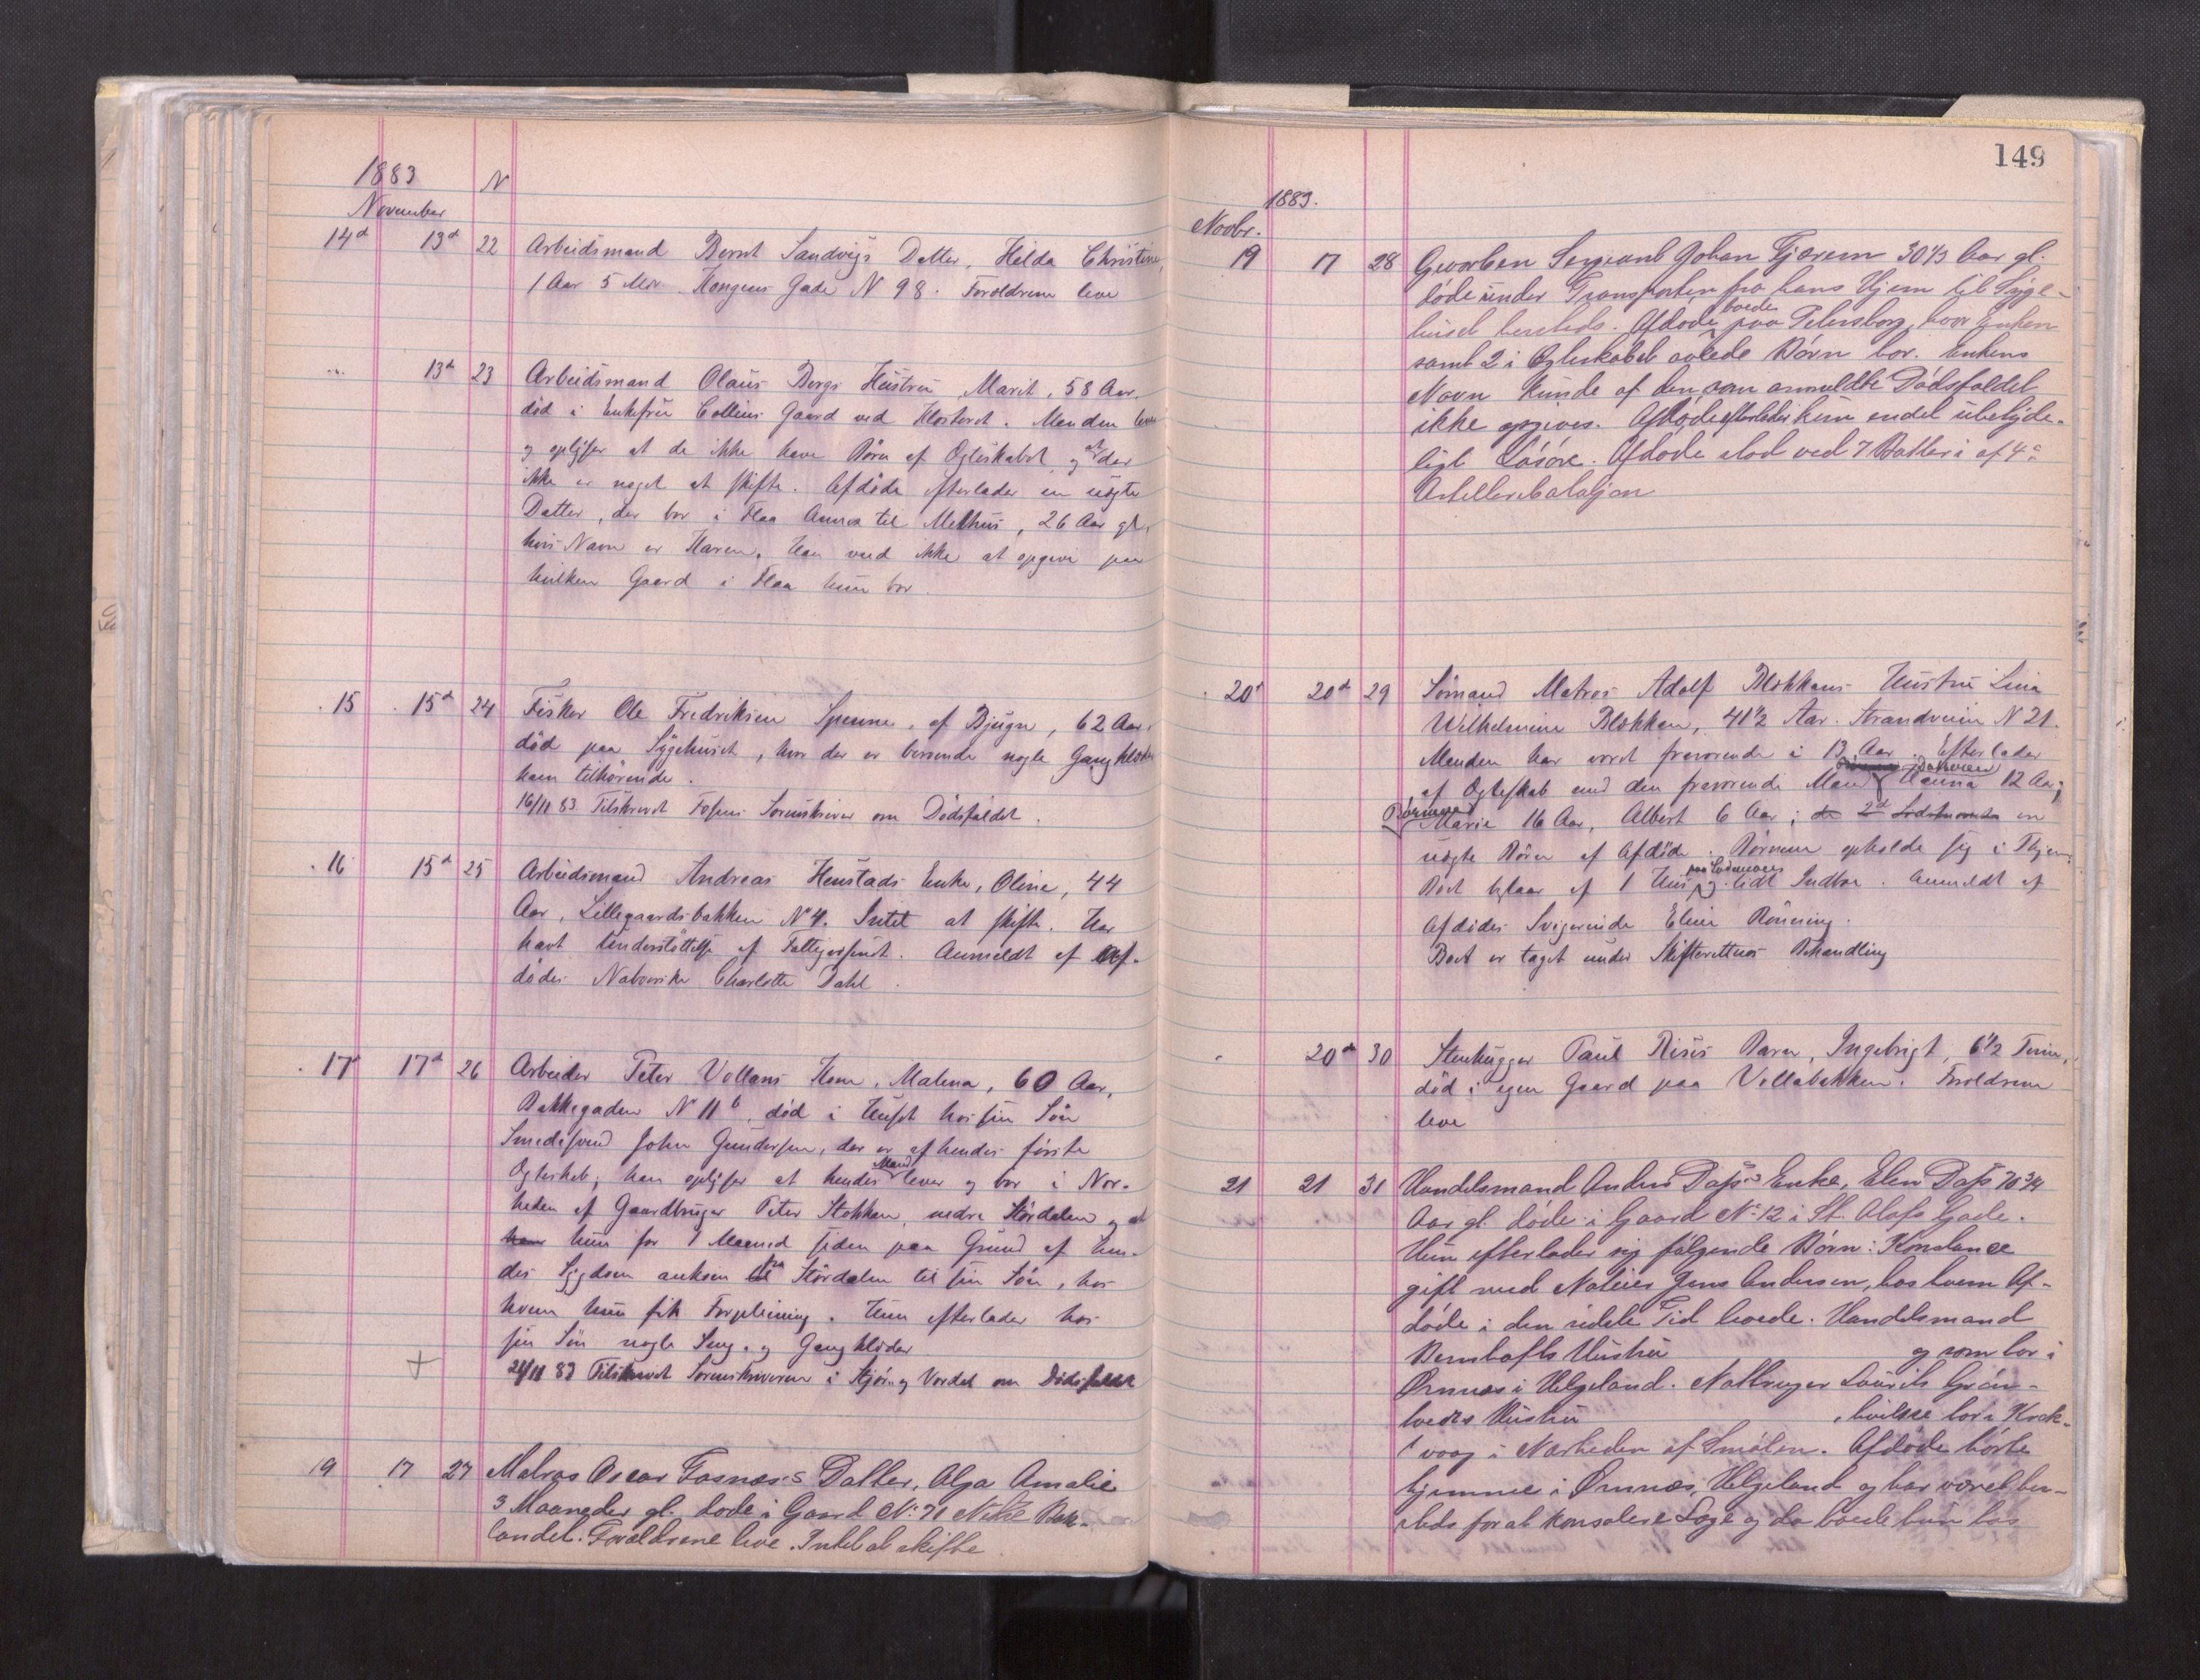 1883 N
November
14d 13d 22 Arbeidsmand Bernt Sandvigs Datter, Hilda Christine,
1 Aar 5 Mdr. Kongens Gade N 98. Forældrene leve
13d 23 Arbeidsmand Olaus Bergs Hustru Marit, 58 Aar.
død i Enkefru Collins Gaard ved Klosteret. Manden lever
og oplyser at de ikke have Børn af Ægteskabet, og at der
ikke er noget at skifte. Afdøde efterlader en uægte
Datter, der bor i Flaa Annex til Melhus, 26 Aar gl,
hvis Navn er Karen. Han ved ikke at opgive paa
hvilken Gaard i Flaa hun bor.
15 15d 24 Fisker Ole Fredriksen, af Bjugn, 62 Aar,
død paa Sygehuset, hvor der er beroende nogle Gangklæder
ham tilhørende.
16/11 83 Tilskrevet Fosens Sorenskriver om Dødsfaldet.
16 15d 25 Arbeidsmand Andreas Heustads Enke, Oline, 44
Aar, Lillegaardsbakken N 4. Intet at skifte. Har
havt Understøttelse af Fattigvæsenet. Anmeldt af Af-
dødes Naboerske Charlotte Dahl.
17d 17d 26 Arbeider Peter Vollans Kone, Malena, 60 Aar,
Bakkegaden N 11b, død i Huset hos sin Søn
Smedesvend John Gundersen, der er af hendes første
Ægteskab; han oplyser at hendes Mand lever og bor i Nær-
heden af Gaardbruger Peter Stokkan, nedre Stördalen og at
hun for 1 Maaned siden paa Grund af hen-
des Sygdom ankom fra Stördalen til sin Søn, hos
hvem hun fik Forpleining. Hun efterlader hos
sin Søn nogle Seng- og Gangklæder
24/11 83 Tilskrevet Sorenskriveren i Stjør- og Værdal om Dødsfaldet
19 17 27 Matros Oscar Fosnæs's Datter, Olga Amalie
3 Maaneder gl. døde i Gaard No. 71 Nedre Bak-
landet. Forældrene leve. Intet at skifte
149
1883.
Novbr.
19 17 28 Gevorben Sergeant Johan Fjærem 30 1/3 Aar gl.
døde under Transporten fra hans Hjem til Syge-
huset hersteds. Afdøde boede paa Petersborg, hvor Enken
samt 2 i Ægteskabet avlede Børn bor. Enkens
Navn kunde af den som anmeldte Dødsfaldet
ikke opgives. Afdøde efterlader kun endel ubetyde-
ligt Løsøre. Afdøde stod ved 7 Batteri af 4de
Artilleribataljon
20d 20d 29 Sømand Matros Adolf Blokkans Hustru Lina
Wilhelmine Blokkan, 41 1/2 Aar. Strandveien N 21.
Manden har været fraværende i 13 Aar. Efterlader
af Ægteskab med den fraværende Mand Hanna 12 Aar;
Børnene
Marie 16 Aar, Albert 6 Aar; er
uægte Børn af Afdøde. Børnene opholde sig i Hjem.
Boet bestaar af 1 Hus og lidt Indbo. Anmeldt af
Afdødes Svigerinde Eline Rönning.
Boet er taget under Skifterettens Behandling
20d 30 Stenhugger Paul Risis Barn, Ingebrigt, 6 1/2 Time,
død i egen Gaard paa Vollabakken. Forældrene
leve
21 21 31 Handelsmand Anders Dass's Enke, Elen Dass 70 3/4
Aar gl. døde i Gaard No. 12 i St. Olafs Gade.
Hun efterlader sig følgende Børn: Konstance
gift med Jens Andersen, hos hvem Af-
døde i den sidste Tid boede. Handelsmand
Hustru og som bor i
Ørnnæs i Helgeland. Laurits Grön-
Hustru, hvilke bor i Krok-
vaag i Nærheden af Smølen. Afdøde hørte
hjemme i Ørnnæs, Helgeland og har været her-
steds for at konsulere Læge og da boede hun hos